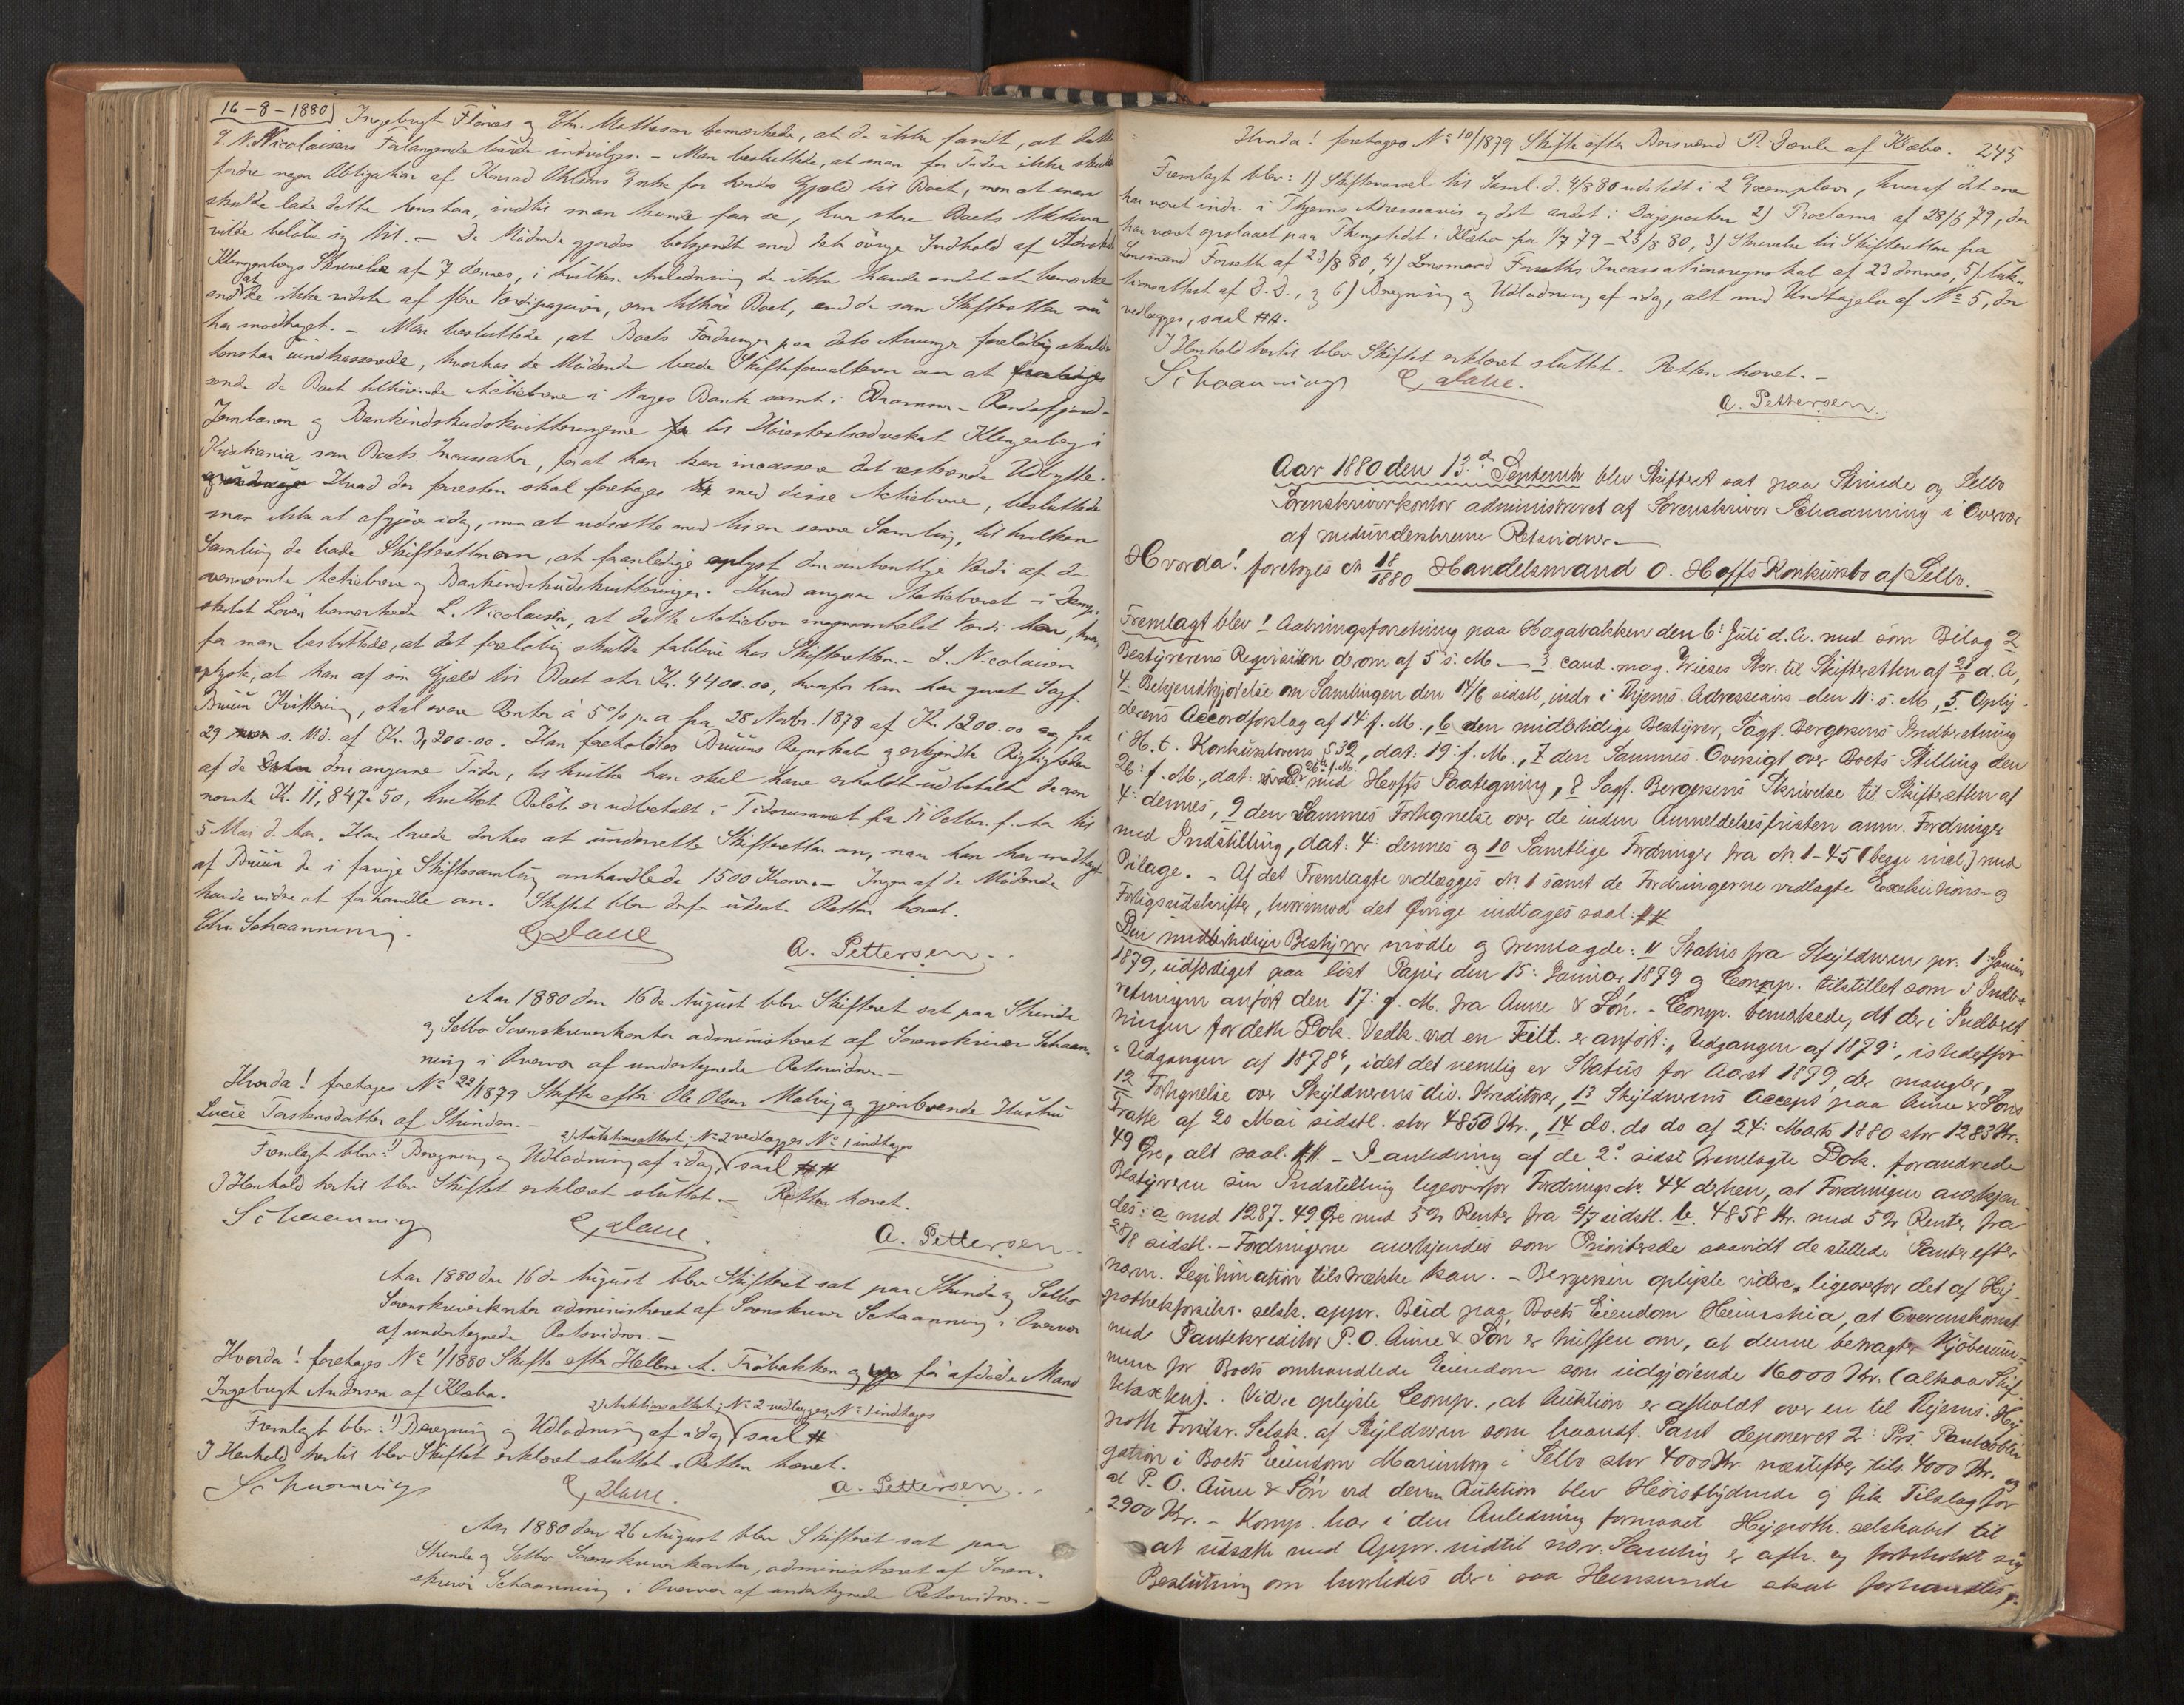 16-8-1880) Ingebrigt Flönæs og Chr. Mathesen bemærkede, at de ikke fandt, at dette
J. N. Nicolaisens Forlangende burde indvilges. - Man besluttede, at man for Tiden ikke skulde
fordre nogen Obligation af Konrad Ohlsens Enke for hendes Gjæld til Boet, men at man
skulde lade dette henstaa, indtil man kunde faa se, hvor store Boets Aktiva
vilde beløbe sig til. - De Mødende gjordes bekjendt med det övrige Indhold af Advokat
Klingenbergs Skrivelse af 7 dennes, i hvilken Anledning de ikke havde andet at bemærke
end at de ikke vidste af flere Værdipapirer, som tilhöre Boet, end de som Skifteretten nu
har modtaget. - Man besluttede, at Boets Fordringer paa dets Arvinger foreløbig skulde
henstaa uindkasserede, hvorhos de Mødende bade Skifteforvalteren om at
sende de Boet tilhörende Actiebreve i Norges Bank samt i Drammen-Randsfjord-
Jernbanen og Bankindskudskvitteringerne til Höiesteretsadvokat Klingenberg i
Kristiania som Boets Incassator, forat han kan incassere det resterende Udbytte.
Hvad der foresten skal foretages med disse Actiebreve, besluttede
man ikke at afgjöre idag, men at udsætte med til en senere Samling, til hvilken
Samling de bade Skifteretten om, at foranledige oplyst den omtrentlige Værdi af de
ovennævnte Actiebreve og Bankindskudskvitteringer. Hvad angaar Actiebrevet i Damp-
skibet Loven bemærkede L. Nicolaisen, at dette Actiebrev ingensomhelst Værdi har, hvor-
for man besluttede, at det foreløbig skulde forblive hos Skifteretten. - L. Nicolaisen
oplyste, at han af sin Gjæld til Boet stor Kr. 4400.00, hvorfor han har givet Sagf.
Bruun Kvittering, skal svare Renter à 5% p. a fra 28 Novbr. 1878 af Kr. 1200.00 og fra
29 s. Md. af Kr. 3,200.00. Han foreholdtes Bruuns Regnskab og erkjendte Rigtigheden
af de deri angivne Tider, til hvilke han skal have erholdt udbetalt de oven
nævnte Kr. 11,847.50, hvilket Beløb er udbetalt i Tidsrummet fra 11 Octbr. f. Aar til
5 Mai d. Aar. Han lovede derhos at underrette Skifteretten om, naar han har modtaget
af Bruun de i forrige Skiftesamling omhandlede 1500 Kroner. - Ingen af de Mødende
havde videre at forhandle om. Skiftet blev derfor udsat. Retten hævet.
Chr. Schaanning. E. Dane A. Pettersen.
Aar 1880 den 16de August blev Skifteret sat paa Strinde
og Selbo Sorenskriverkontor administreret af Sorenskriver Schaan-
ning i Overvær af undertegnede Retsvidner. -
Hvorda! foretoges No 22/1879 Skifte efter Ole Olsen Malvig og gjenlevende Hustru
Lucie Torstensdatter af Strinden. -
2) Auktionsattest; No 2 vedlægges No 1 indtages
Fremlagt blev: 1) Beregning og Udlodning af idag, saal. ##
I Henhold hertil blev Skiftet erklæret sluttet. - Retten hævet.
Schaanning E. Dane. A. Pettersen.
Aar 1880 den 16de August blev Skifteret sat paa Strinde og Selbo
Sorenskriverkontor administreret af Sorenskriver Schaanning i Overvær
af undertegnede Retsvidner. -
Hvorda! foretoges No 1/1880 Skifte efter Hellene A. Tröbakken og för afdöde Mand
Ingebrigt Andersen af Klæbo.
2) Auktionsattest; No 2 vedlægges, No 1 indtages
Fremlagt blev: 1) Beregning og Udlodning af idag, saal #
I Henhold hertil blev Skiftet erklæret sluttet. Retten hævet.
Schaanning E. Dane. A. Pettersen.
Aar 1880 den 26 August blev Skifteret sat paa
Strinde og Selbo Sorenskriverkontor, administreret af Soren-
skriver Schaanning i Overvær af undertegnede Retsvidner. -
Hvorda! foretoges No 10/1879 Skifte efter P. af Klæbo. 245
Fremlagt blev: 1) Skiftevarsel til Saml. d. 4/8 80 udstedt i 2 Exemplarer, hvoraf det ene
har været indr. i Thjems Adresseavis og det andet i Dagsposten 2) Proclama af 28/6 79, der
har været opslaaet paa Thingstedet i Klæbo fra 1/7 79 - 23/8 80, 3) Skrivelse til Skifteretten fra
Lensmand Forseth af 23/8 80, 4) Lensmand Forseths Incassationsregnskab af 23 dennes, 5) Auk-
tionsattest af D. D., og 6) Beregning og Udlodning af idag, alt med Undtagelse af No 5, der
vedlægges, saal. ##.
I Henhold hertil blev Skiftet erklæret sluttet. Retten hævet. -
Schaanning E. Dane. A. Pettersen.
Aar 1880 den 13de September blev Skifteret sat paa Strinde og Selbo
Sorenskriverkontor administreret af Sorenskriver Schaanning i Overvær
af medunderskrevne Retsvidner. -
Hvorda! foretoges No 18/1880 Handelsmand O. Hoffs Konkursbo af Selbo.
Fremlagt blev 1 Aabningsforretning paa Hagabakken den 6: Juli d. A. med som Bilag 2
Bestyrerens Reqvisition derom af 5 s. M. - 3 cand. mag. Wieses Skr. til Skifteretten af d. A,
4 Bekjendtgjørelse om Samlingen den 14/8 sidstl. indr. i Thjems. Adresseavis den 11: s. M, 5 Opby-
derens Accordforslag af 14 f. M., 6 den midlertidige Bestyrer, Sagf. Bergersens Indberetning
i H. t. Konkurslovens § 39, dat. 19: f. M., 7 den Sammes Oversigt over Boets Stilling den
26: f. M., dat: 26de f. M. med Hoffs Paategning, 8 Sagf. Bergersens Skrivelse til Skifteretten af
4: dennes, 9 den Sammes Fortegnelse over de inden Anmeldelsesfristen anm. Fordringer
med Indstilling, dat: 4: dennes og 10 Samtlige Fordringer fra No 1-45 (begge incl.) med
Bilage. - Af det Fremlagte vedlægges No 1 samt de Fordringerne vedlagte Exekutions- og
Forligsudskrifter, hvorimod det Øvrige indtages saal: ##
Den midlertidige Bestyrer mødte og fremlagde: 11 Status fra Skyldneren pr. 1: Januar
1879, udfærdiget paa löst Papir den 15: Januar 1879 og Comp. tilstillet som i Indbe-
retningen anført den 17: f. M. fra Aune & Sön. - Comp. bemærkede, at der i Indberet
ningen for dette Dok. Vedk. ved en Feilt. er anført: "Udgangen af 1879", istedetfor
"Udgangen af 1878", idet det nemlig er Status for Aaret 1879, der mangler,
12 Fortegnelse over Skyldnerens div. Kreditorer, 13 Skyldnerens Accept paa Aune & Søns
Tratte af 20 Mai sidstl. stor 4850 Kr., 14 do. do do af 24: Marts 1880 stor 1283 Kr.
49 Øre, alt saal. ##. - I anledning af de 2de sidst fremlagte Dok. forandrede
Bestyreren sin Indstilling ligeoverfor Fordring No 44 derhen, at Fordringen anerkjen-
des: a med 1287. 49 Øre med 5% Renter fra 2/7 sidstl. b. 4858 Kr. med 5% Renter fra
28/8 sidstl. - Fordringerne anerkjendes som Prioriterede saavidt de stillede Panter efter
nærm. Legitimation tilstrække kan. - Bergersen oplyste videre, ligeoverfor det af Hy-
pothekforsikr. selsk. appr. Bud paa Boets Eiendom, at Overenskomst
med Pantekreditor P. O. Aune & Søn er truffen om, at denne betragter Kjøbesum-
men for Boets omhandlede Eiendom som udgjørende 16000 Kr. (altsaa Skif-
tetaxten). Videre oplyste Comp., at Auktion er afholdt over en til Thjems. Hy
poth. Forsikr. Selsk. af Skyldneren som haandf. Pant deponeret 2: Pr. Panteobli
gation i Boets Eiendom Marienborg i Selbo stor 4000 Kr. næstefter tils. 4000 Kr. og
at P. O. Aune & Sön ved denne Auktion blev Høistbydende og fik Tilslag for
2900 Kr. - Komp. har i den Anledning formaaet Hypoth. selskabet til
at udsætte med Appr. indtil nærv. Samling er afh. og forbeholdt sig
Beslutning om hvorledes der i saa Henseende skal forhandles.